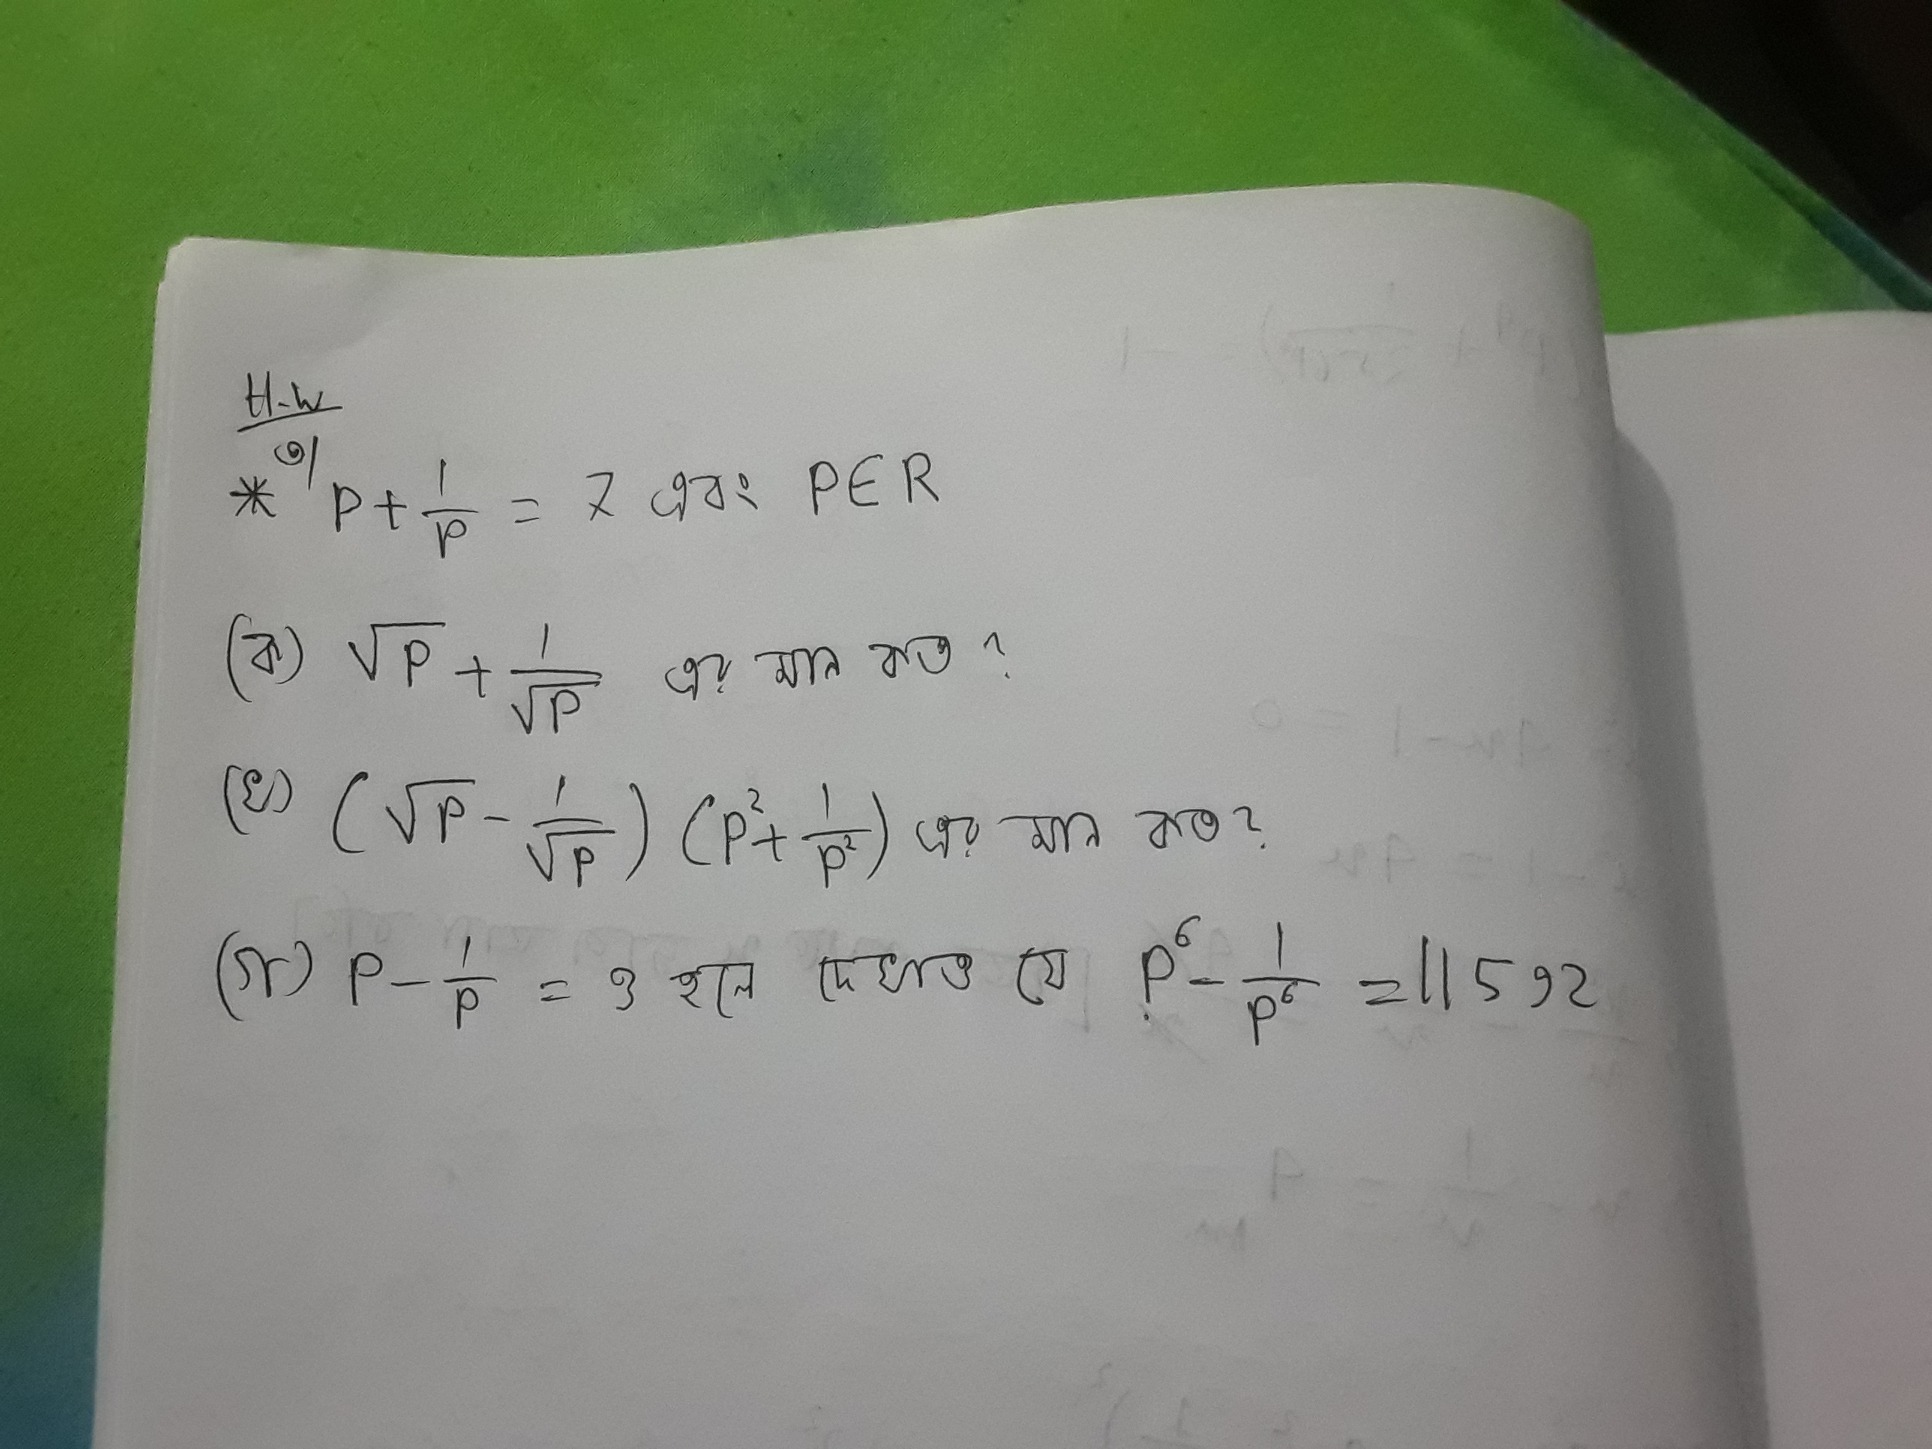 H.W
৩|
* P + 1/P = 7 এবং PER
(ক) √P + 1/√P এর মান কত ?
(খ) (√P - 1/√P) (P² + 1/P²) এর মান কত?
(গ) P - 1/P = 3 হলে দেখাও যে P⁶ - 1/P⁶ = 11592